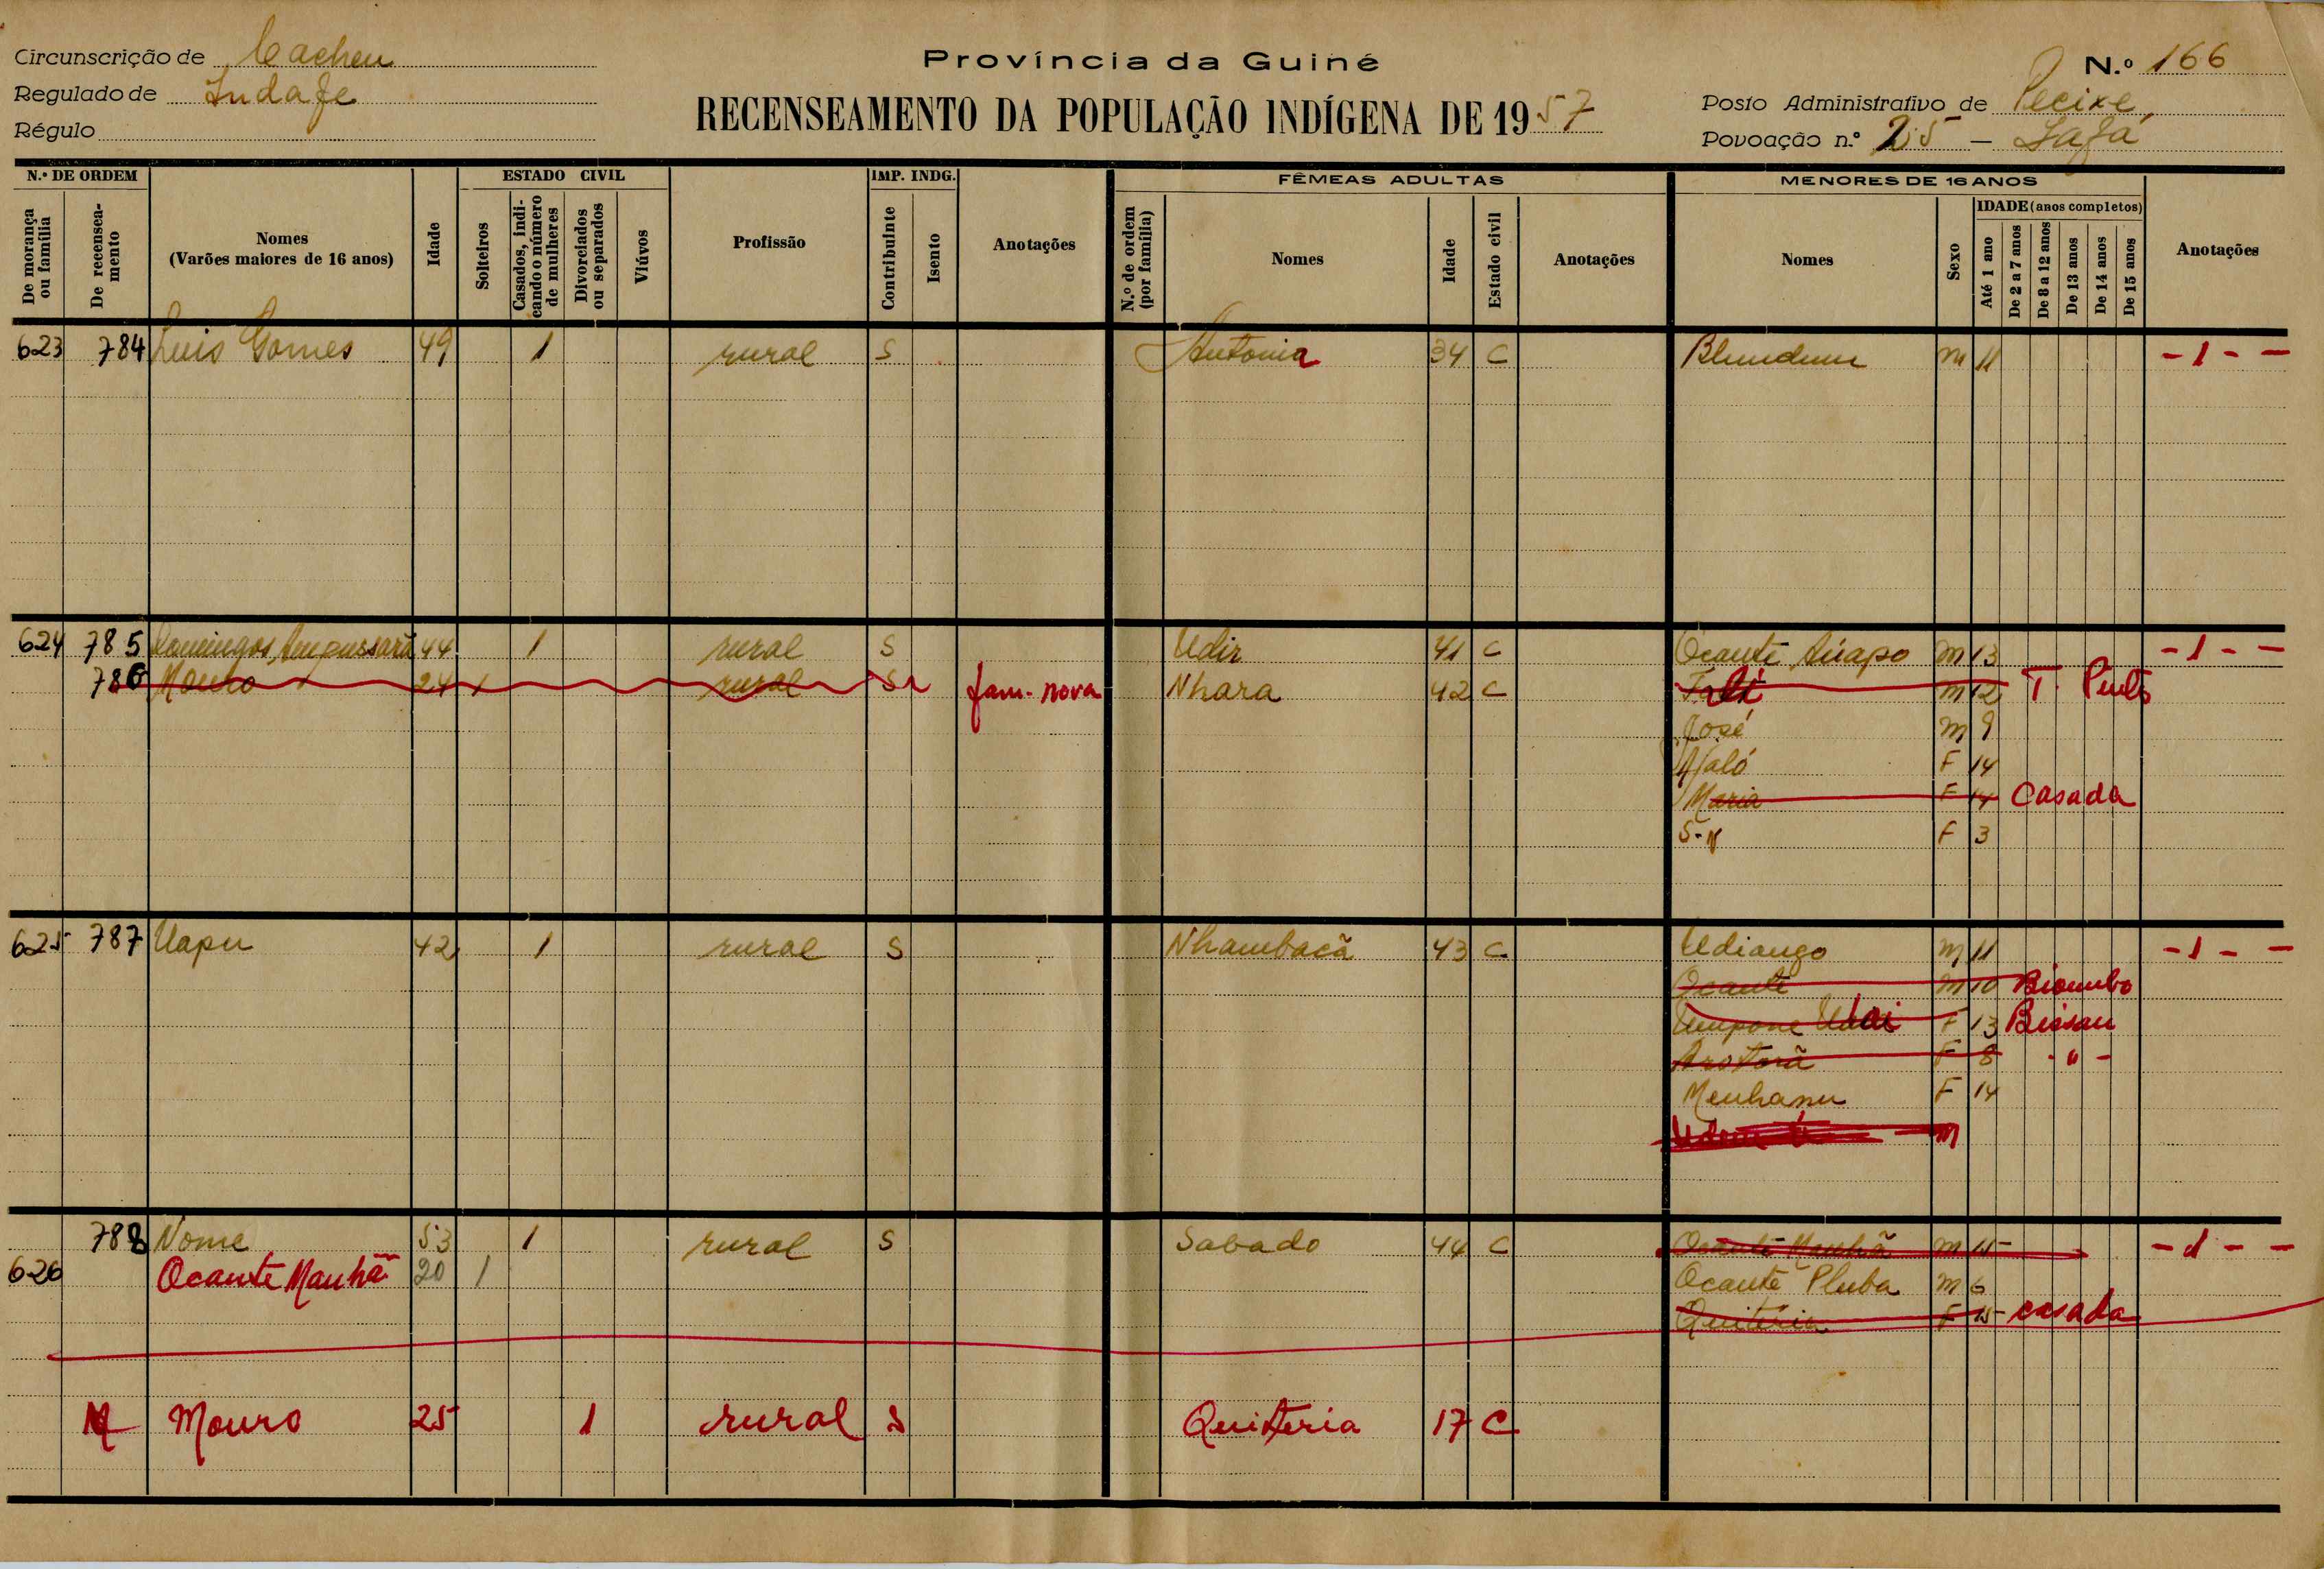 Circunscrição de Cacheu
Regulado de Indafe
Régulo
Província da Guiné
RECENSEAMENTO DA POPULAÇÃO INDÍGENA DE 1957
N.º 166
Posto Administrativo de Pecixe
Povoação n.º 25 —
N.º DE ORDEM
De morança ou família
De recenseamento
Nomes
(Varões maiores de 16 anos)
Idade
ESTADO CIVIL
Solteiros
Casados, indicando o número de mulheres
Divorciados ou separados
Viúvos
Profissão
IMP. INDG.
Contribuinte
Isento
Anotações
FÊMEAS ADULTAS
N.º de ordem (por família)
Nomes
Idade
Estado civil
Anotações
MENORES DE 16 ANOS
Nomes
Sexo
IDADE (anos completos)
Até 1 ano
De 2 a 7 anos
De 8 a 12 anos
De 13 anos
De 14 anos
De 15 anos
Anotações
623 784 Luis Gomes 49 1 rural S Antonia 34 C m 11 - 1 - -
624 785 Domingos 44 1 rural S Udir 41 C Ocante m 13 - 1 - -
786 Mouro 24 1 rural S fam. nova Nhara 42 C m 12 T.
José m 9
Njaló F 14
Maria F 14 Casada
S-N F 3
625 787 Uapu 42 1 rural S Nhambacã 43 C Udiango m 11 - 1 - -
Ocante m 10 Biombo
F 13 Bissau
F 8 - " -
Menhanu F 14
m
788 Nome 53 1 rural S Sabado 44 C Ocante Manhã m 15 - 1 - -
626 Ocante Manhã 20 1 Ocante Pluba m 6
Quiteria F 15 casada
Mouro 25 1 rural S Quiteria 17 C